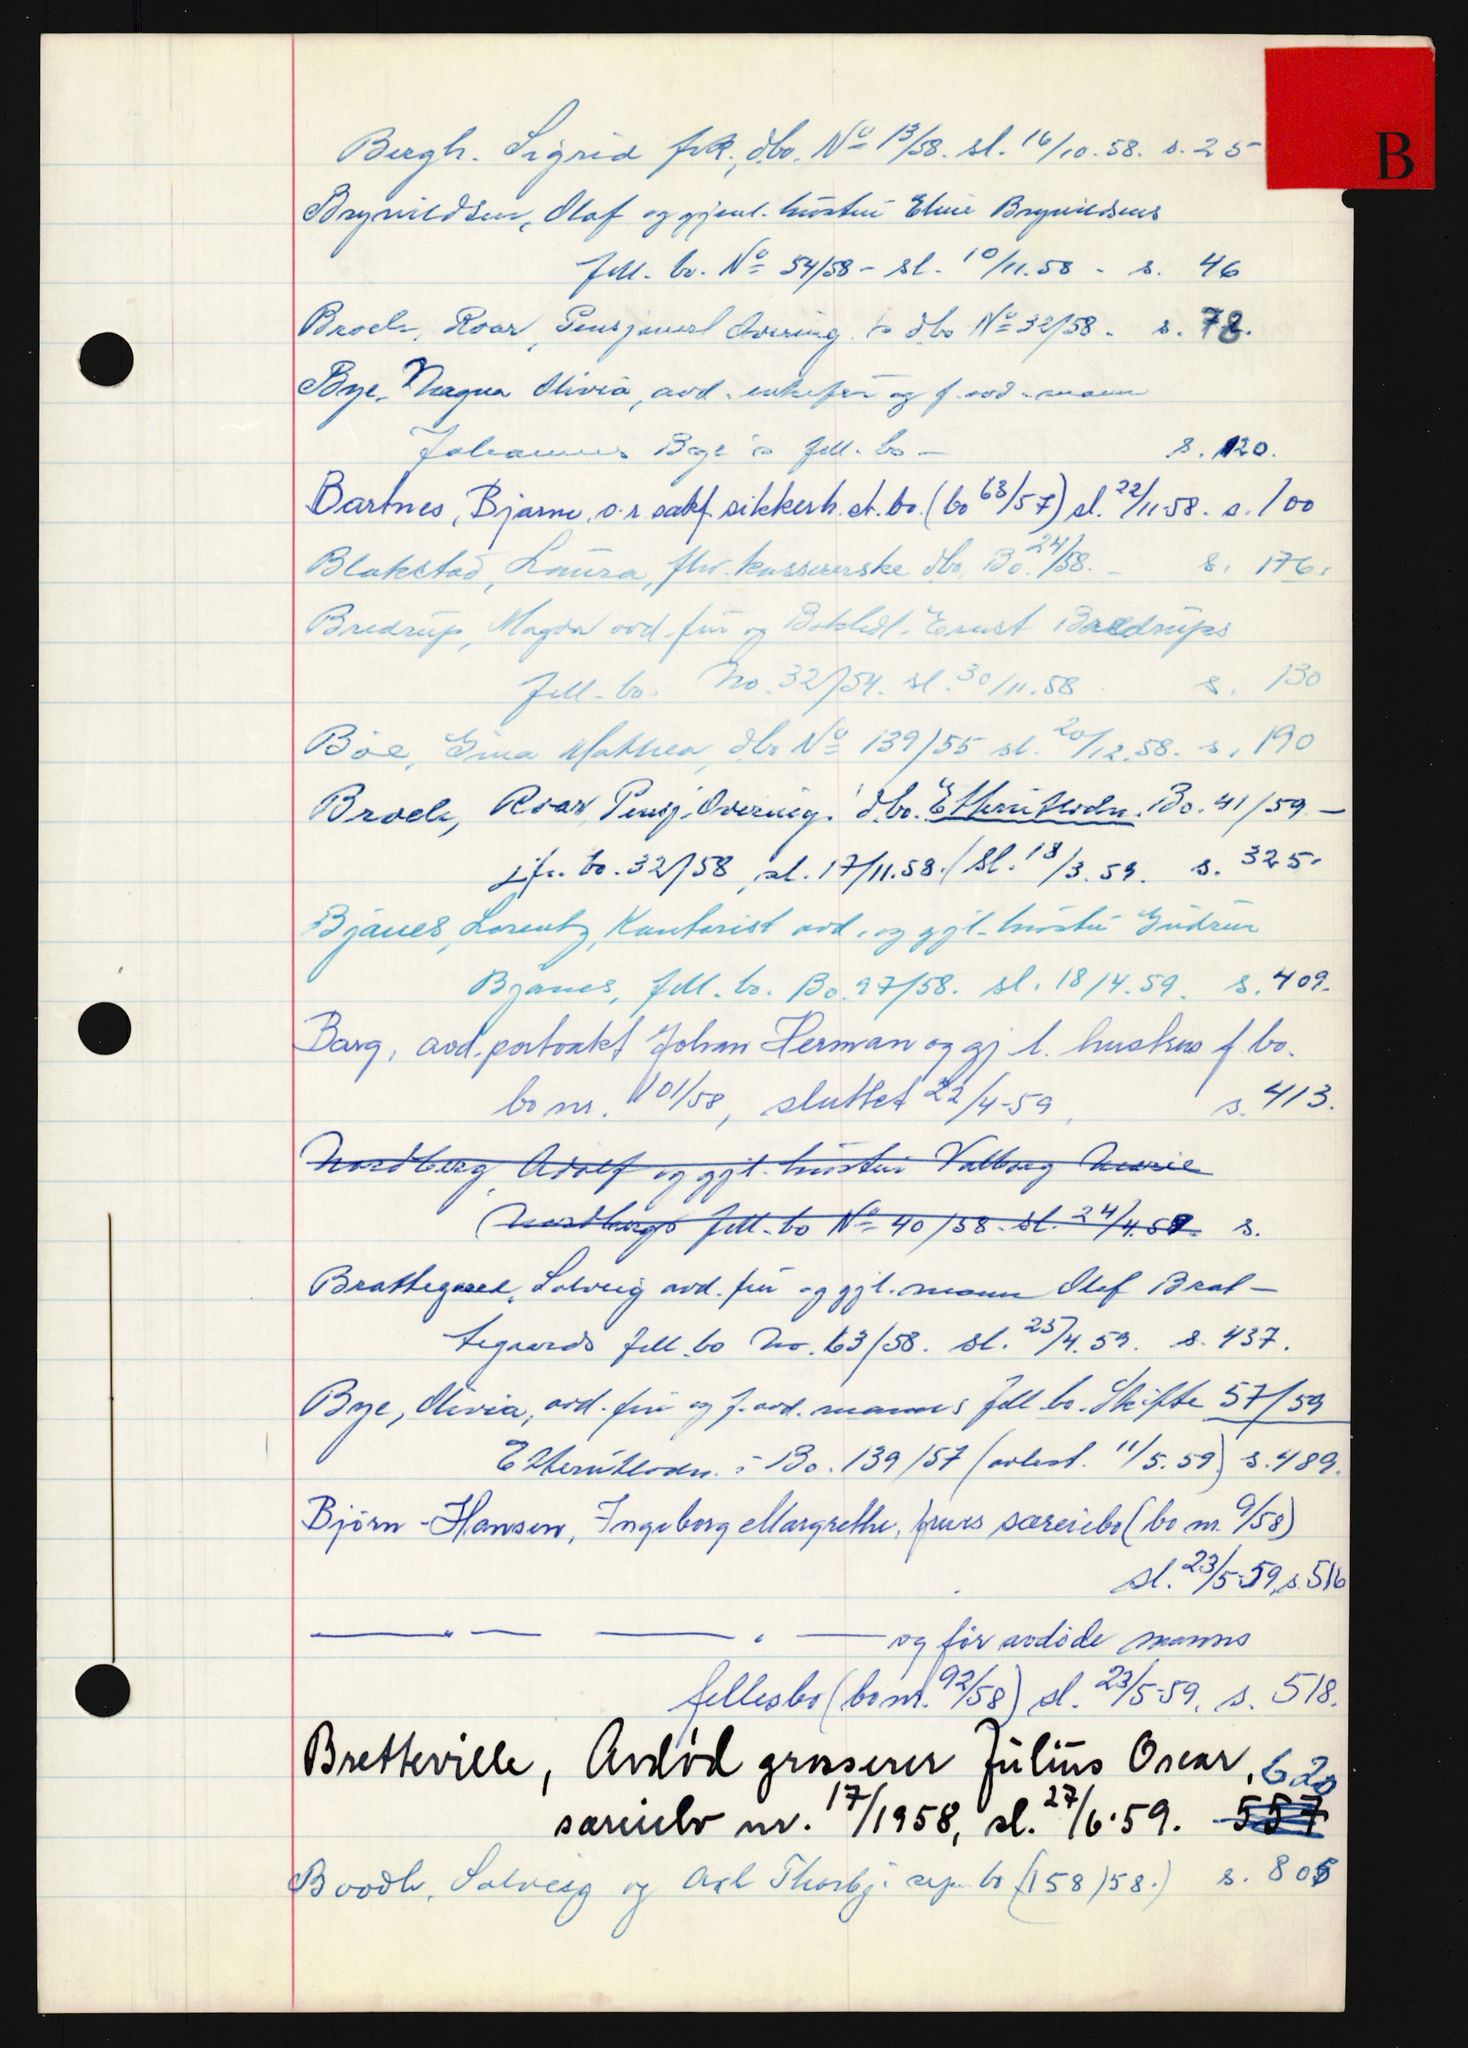 B
Bergh. Sigrid frk., dbo. No 13/58. sl. 16/10.58. s. 25
Brynildsen, Olaf og gjenl. hustru Eline Brynildsens
fell. bo. No 54/58 - sl. 10/11.58 - s. 46
Broch, Roar, Pensjonert Overing. 's dbo No 32/58. s. 78.
Bye, Magna Olivia, avd. enkefru og f. avd. mann
Johannes Bye's fell. bo - s. 120.
Bartnes, Bjarne, o.r.sakf. sikkerh.st. bo. (bo 63/57) sl. 22/11-58. s. 100
Blakstad, Laura, fhv. kassererske dbo. Bo. 24/58. - s. 176.
Bredrup, Magda avd. fru og Bokhdl. Ernst Bredrups
fell. bo. No. 32/54. sl. 30/11.58 s. 130
Böe, Gina Mathea, dbo No 139/55 sl. 20/12.58. s. 190
Broch, Roar, Pensj. Overing. ' dbo. Etterutlodn. Bo. 41/59 -
jfr. bo. 32/58, sl. 17/11.58. (sl. 18/3.59. s. 325.
Bjånes, Lorentz, Kontorist avd. og gjl. hustru Gudrun
Bjånes, fell. bo. Bo. 97/58. sl. 18/4.59. s. 409.
Barg, avd. portvakt Johan Herman og gj.l. hustrus f bo.
bo nr. 101/58, sluttet 22/4-59, s. 413.
Nordberg, Adolf og gjl. hustru Valborg Marie
Nordbergs fell. bo No 40/58 - sl. 24/4.59. s.
Brattegaard, Solveig avd. fru og gjl. mann Olaf Brat-
tegaards fell. bo No. 63/58. sl. 25/4.59. s. 437.
Bye, Olivia, avd. fru og f. avd. manns fell. bo. Skifte 57/59
Etterutlodn. i Bo. 139/57 (avlest. 11/5.59) s. 489.
Bjørn-Hansen, Ingeborg Margrethe, frues særeiebo (bo nr. 9/58)
sl. 23/5-59, s. 516
— " — — " — og før avdøde manns
fellesbo (bo nr. 92/58) sl. 23/5-59, s. 518.
Bretteville, Avdød grosserer Julius Oscar, 620
særeiebo nr. 17/1958, sl. 27/6.59. 557
Boodh, Solveig og Axl Thorbj. sep. bo (158/58.) s. 805